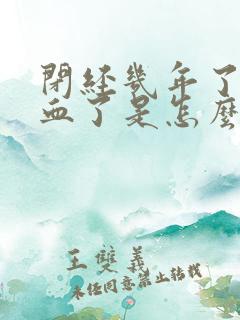 閉經幾年了
血了是怎麼
王雙義
未經同意禁止轉載